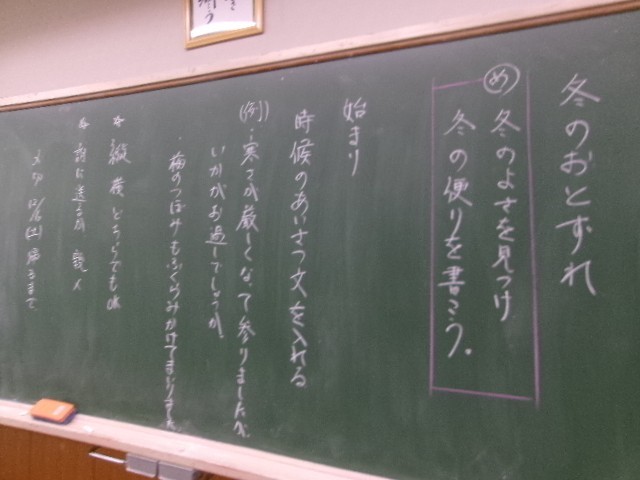 冬のおとずれ
め 冬のよさを見つけ
冬の便りを書こう。
始まり
時候のあいさつ文を入れる
(例)・寒さが厳しくなって参りましたが、
いかがお過しでしょうか。
・梅のつぼみもふくらみかけてまいりました
* 縦横どちらでもOK
* 誰に送るか 説人
〆切 12/6(土)帰るまで